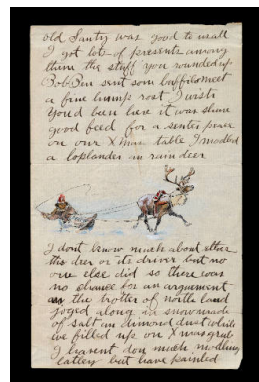 old Santy was good to us all
I got lots of presents among
them the stuff you rounded up
Bob Ben sent som buffilo meet
a fine hump rost I wish
you'd been here it was shure
good feed for a senter peice
on our X mas table I modled
a loplander in rain deer
I dont know much about ether
the deer or its driver but no
one else did so there was
no chance for an argument
as the trotter of north land
joged along in snow made
of salt an dimond dust while
we filled up on X mas grub
I havent don much modling
lattery but have painted